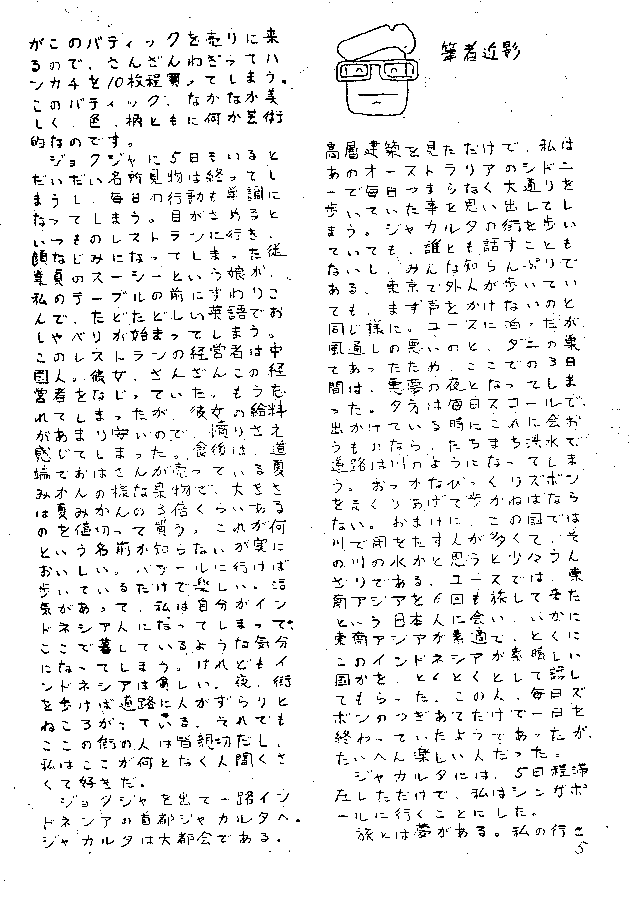 がこのバティックを売りに来
るので、さんざんねぎってハ
ンカチを10枚程買ってしまう。
このバティック、なかなか美
しく、色、柄ともに何か芸術
的なのです。
ジョクジャに5日もいると
だいだい名所見物は終ってし
まうし、毎日の行動も単調に
なってしまう。目がさめると
いつものレストランに行き、
顔なじみになってしまった従
業員のスーシーという娘が、
私のテーブルの前にすわりこ
んで、たどたどしい英語でお
しゃべりが始まってしまう。
このレストランの経営者は中
国人。彼女、さんざんこの経
営者をなじっていた。もう忘
れてしまったが、彼女の給料
があまり安いので、憤りさえ
感じてしまった。食後は、道
端でおばさんが売っている夏
みかんの様な果物で、大きさ
は夏みかんの3倍くらいある
のを値切って買う。これが何
という名前か知らないが実に
おいしい。バザールに行けば
歩いているだけで楽しい。活
気があって、私は自分がイン
ドネシア人になってしまって、
ここで暮しているような気分
になってしまう。けれどもイ
ンドネシアは貧しい。夜、街
を歩けば道路に人がずらりと
ねころがっている。それでも
ここの街の人は皆親切だし、
私はここが何となく人間くさ
くて好きだ。
ジョクジャを出て一路イン
ドネシアの首都ジャカルタへ。
ジャカルタは大都会である。
筆者近影
高層建築を見ただけで、私は
あのオーストラリアのシドニ
ーで毎日つまらなく大通りを
歩いていた事を思い出してし
まう。ジャカルタの街を歩い
ていても、誰とも話すことも
ないし、みんな知らんぷりで
ある。東京で外人が歩いてい
ても、まず声をかけないのと
同じ様に。ユースに泊ったが
風通しの悪いのと、ダニの巣
であったため、ここでの3日
間は、悪夢の夜となってしま
った。夕方は毎日スコールで、
出かけている時にこれに会お
うものなら、たちまち洪水で
道路は川のようになってしま
う。おっかなびっくりズボン
をまくりあげて歩かねばなら
ない。おまけに、この国では
川で用をたす人が多くて、そ
の川の水かと思うと少々うん
ざりである。ユースでは、東
南アジアを6回も旅して来た
という日本人に会い、いかに
東南アジアが素適で、とくに
このインドネシアが素晴しい
国かを、とくとくとして話し
てもらった。この人、毎日ズ
ボンのつぎあてだけで一日を
終わっていたようであったが、
たいへん楽しい人だった。
ジャカルタには、5日程滞
在しただけで、私はシンガポ
ールに行くことにした。
旅とは夢がある。私の行こ
5